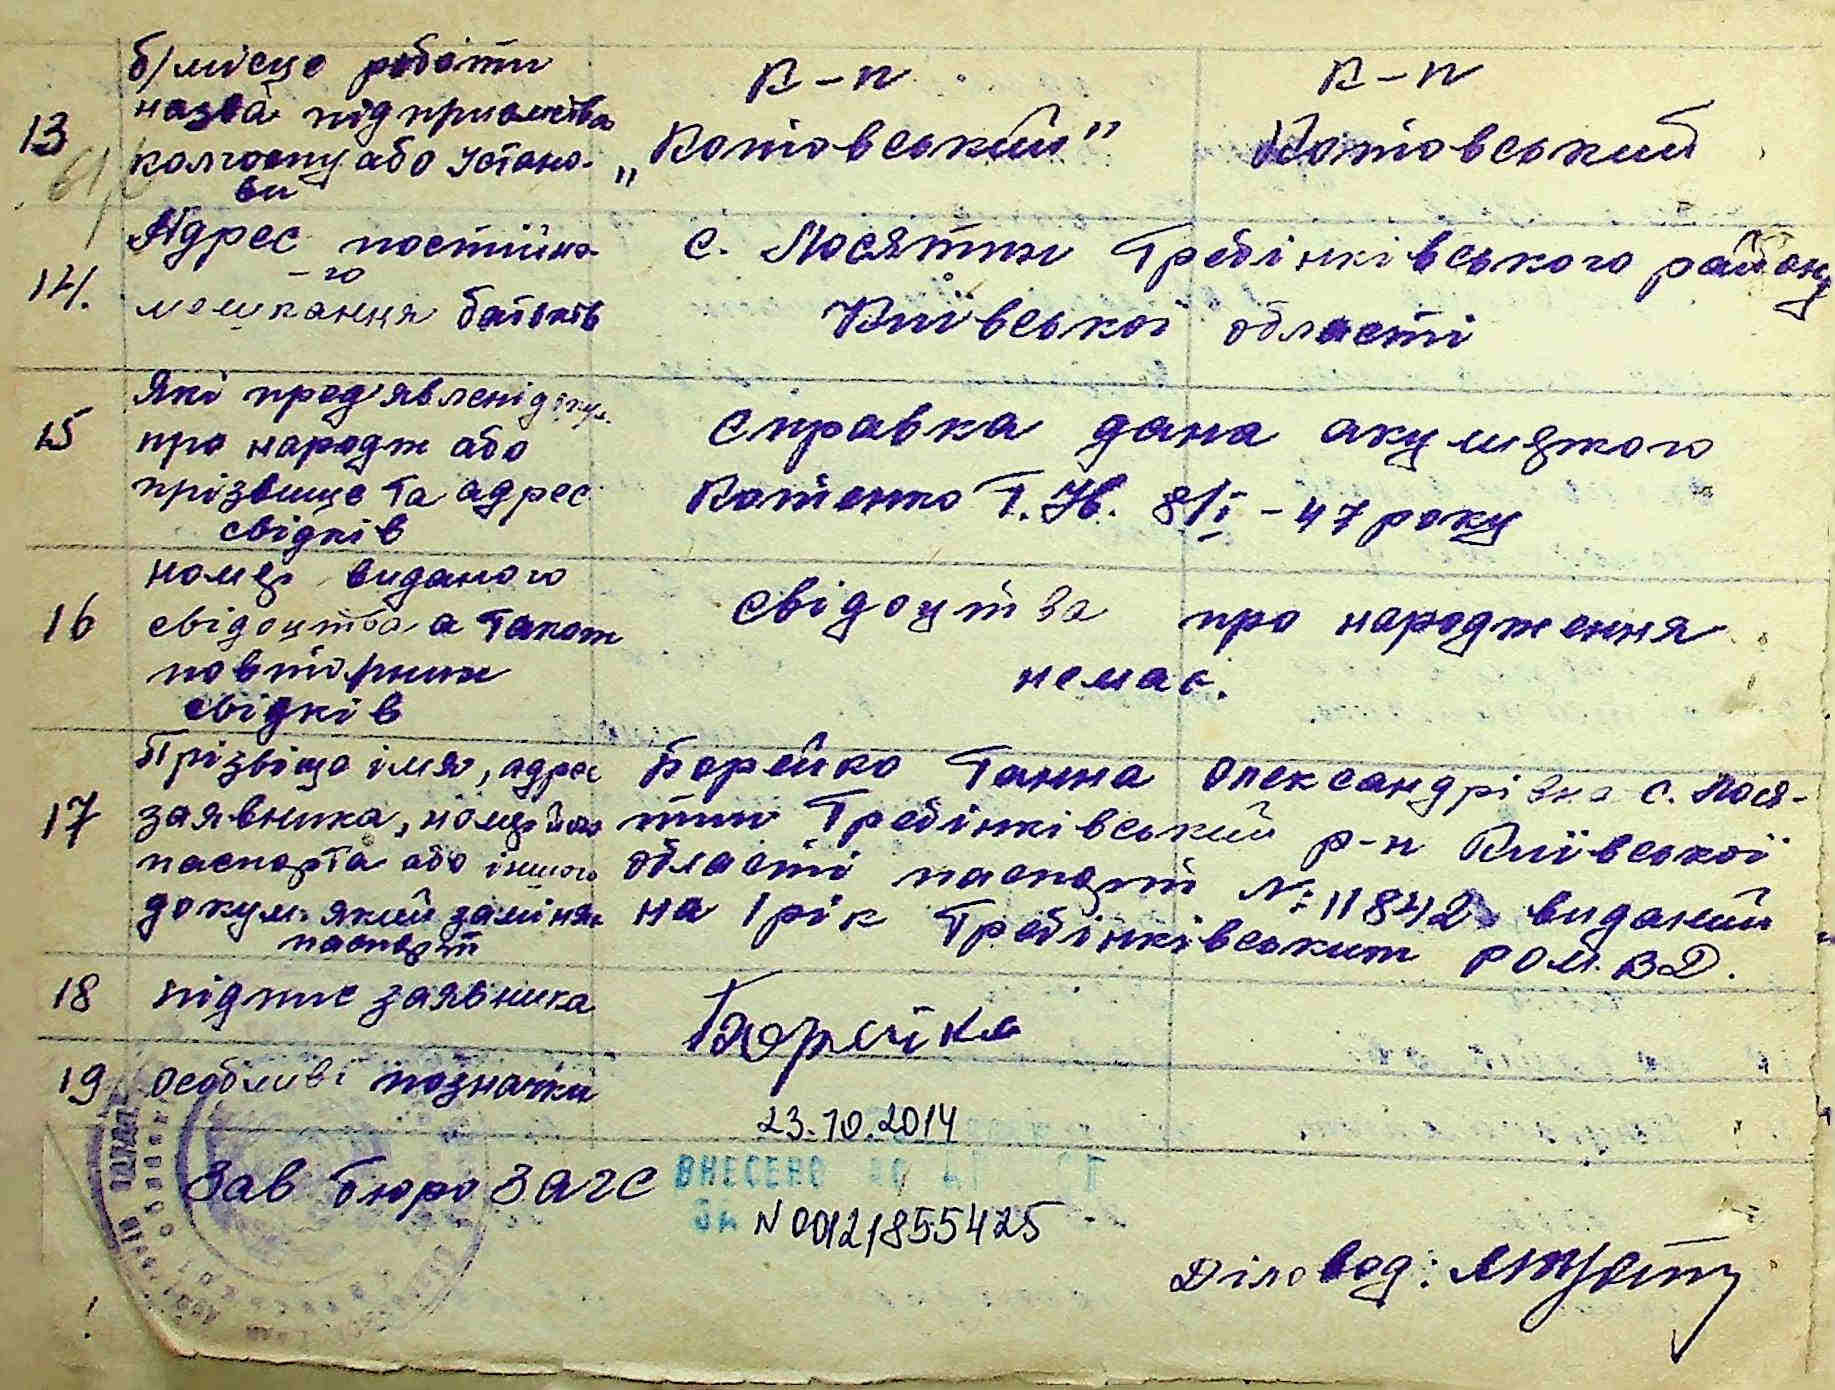 13 б) місце роботи
назва підприємства
колгоспу або устано-
ви
К-п К-п
„Котовський" Котовський
14. Адрес постійно-
го
мешкання батьків
с. Лосятин Гребінківського району
Київської області
15 Які пред'явлені докум.
про народж або
прізвище та адрес
свідків
Справка дана акушеркою
Котенко Г. Ів. 8/I – 47 року
16 номер виданого
свідоцтва а також
повторних
свідків
свідоцтва про народження
немає.
17 Прізвіще імя, адрес
заявника, номер його
паспорта або іншого
докум. який заміняє
паспорт
Борейко Ганна Олександрівна с. Лося-
тин Гребінківський р-н Київської
області паспорт № 11842 виданий
на 1 рік Гребінківським РОМВД.
18 підпис заявника
Борейко
19 особливі позначки
23.10.2014
Зав бюро ЗАГС
ВНЕСЕНО ДО
ЗА N 00121855425
Діловод: